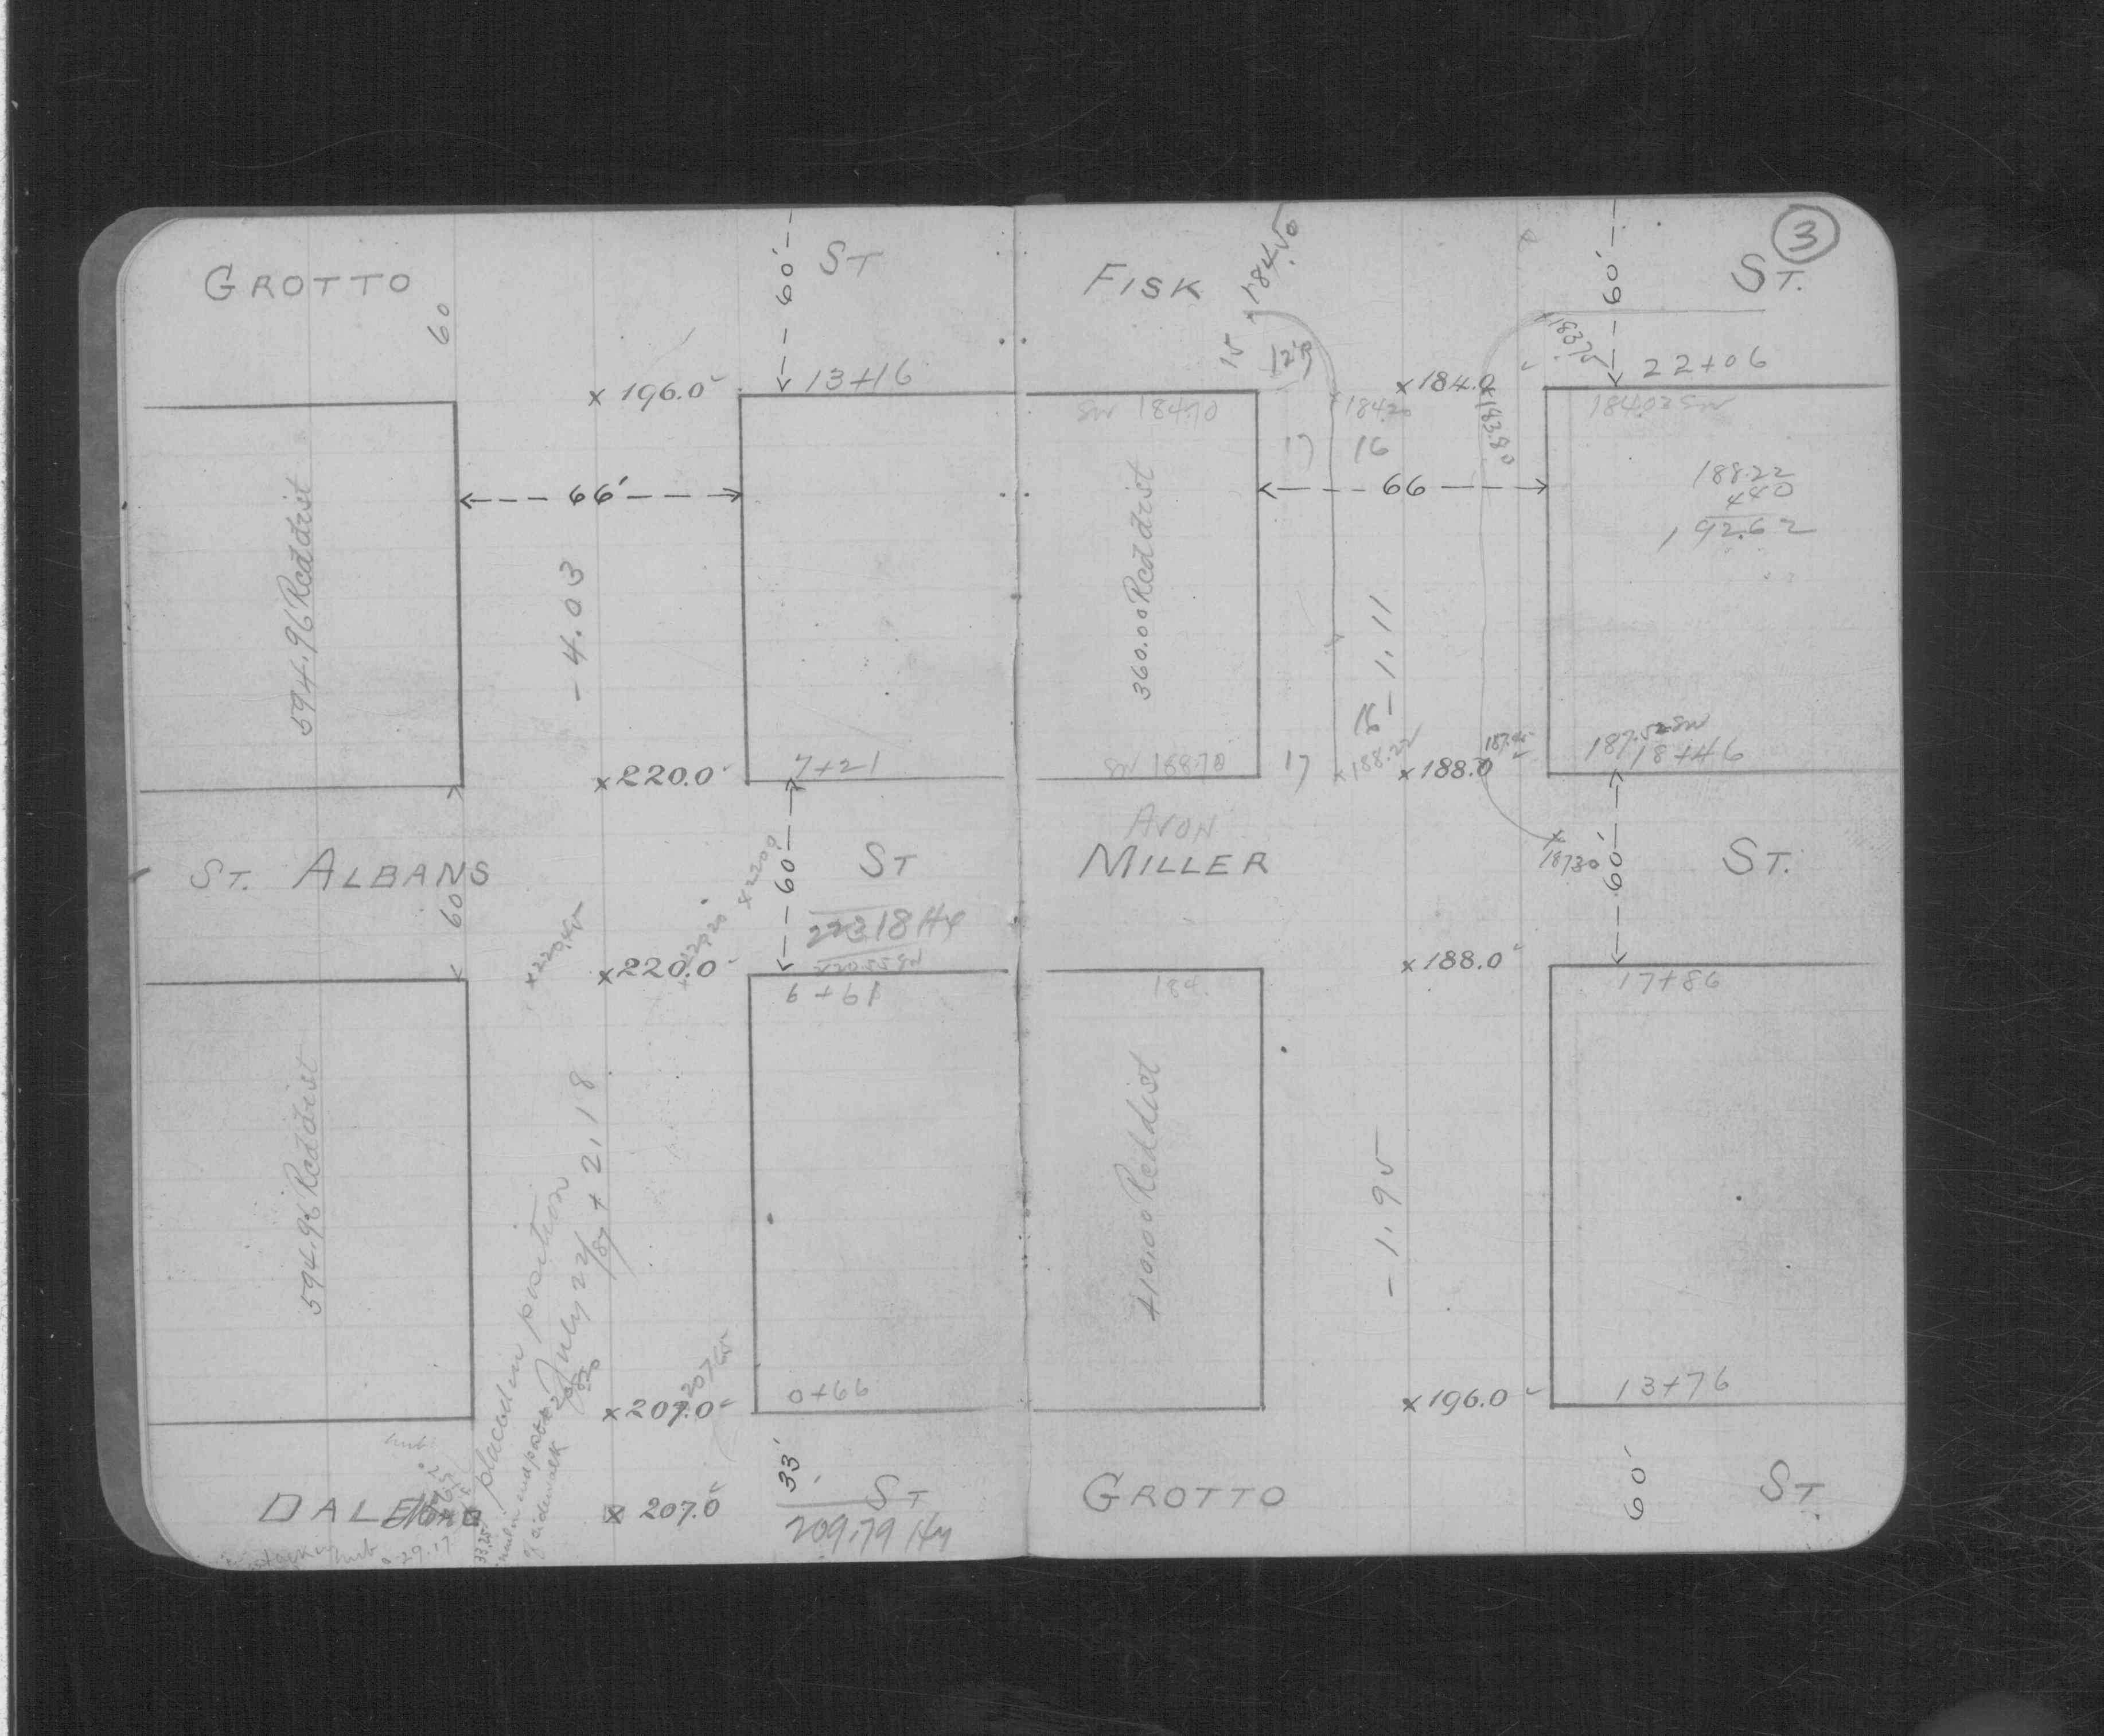 GROTTO ST
60
60'
x 196.0
13+16
594.96 Rcd dist
66'
- 4.03
x 220.0
7+21
ST. ALBANS ST
60
60'
x 220.0
x 220.45
x 220.20
223.18 Hy
x 220.0
6+61
594.96 Rcd dist
+ 2.18
placed in position
July 22/87
x 207.0
0+66
DALE ST
33'
x 207.0
209.79 Hy
3
FISK ST.
184.50
60'
15
12'R
183.75
22+06
x 184.0
SW 184.70
184.20
183.80
184.02 SW
17
16
360.00 Rcd dist
66
188.22
4.40
192.62
- 1.11
16
SW 188.70
17
x 188.22
x 188.0
187.52 SW
18+46
AVON
MILLER ST.
187.30
60'
x 188.0
184.
17+86
410.00 Rcd dist
- 1.95
x 196.0
13+76
GROTTO ST.
60'